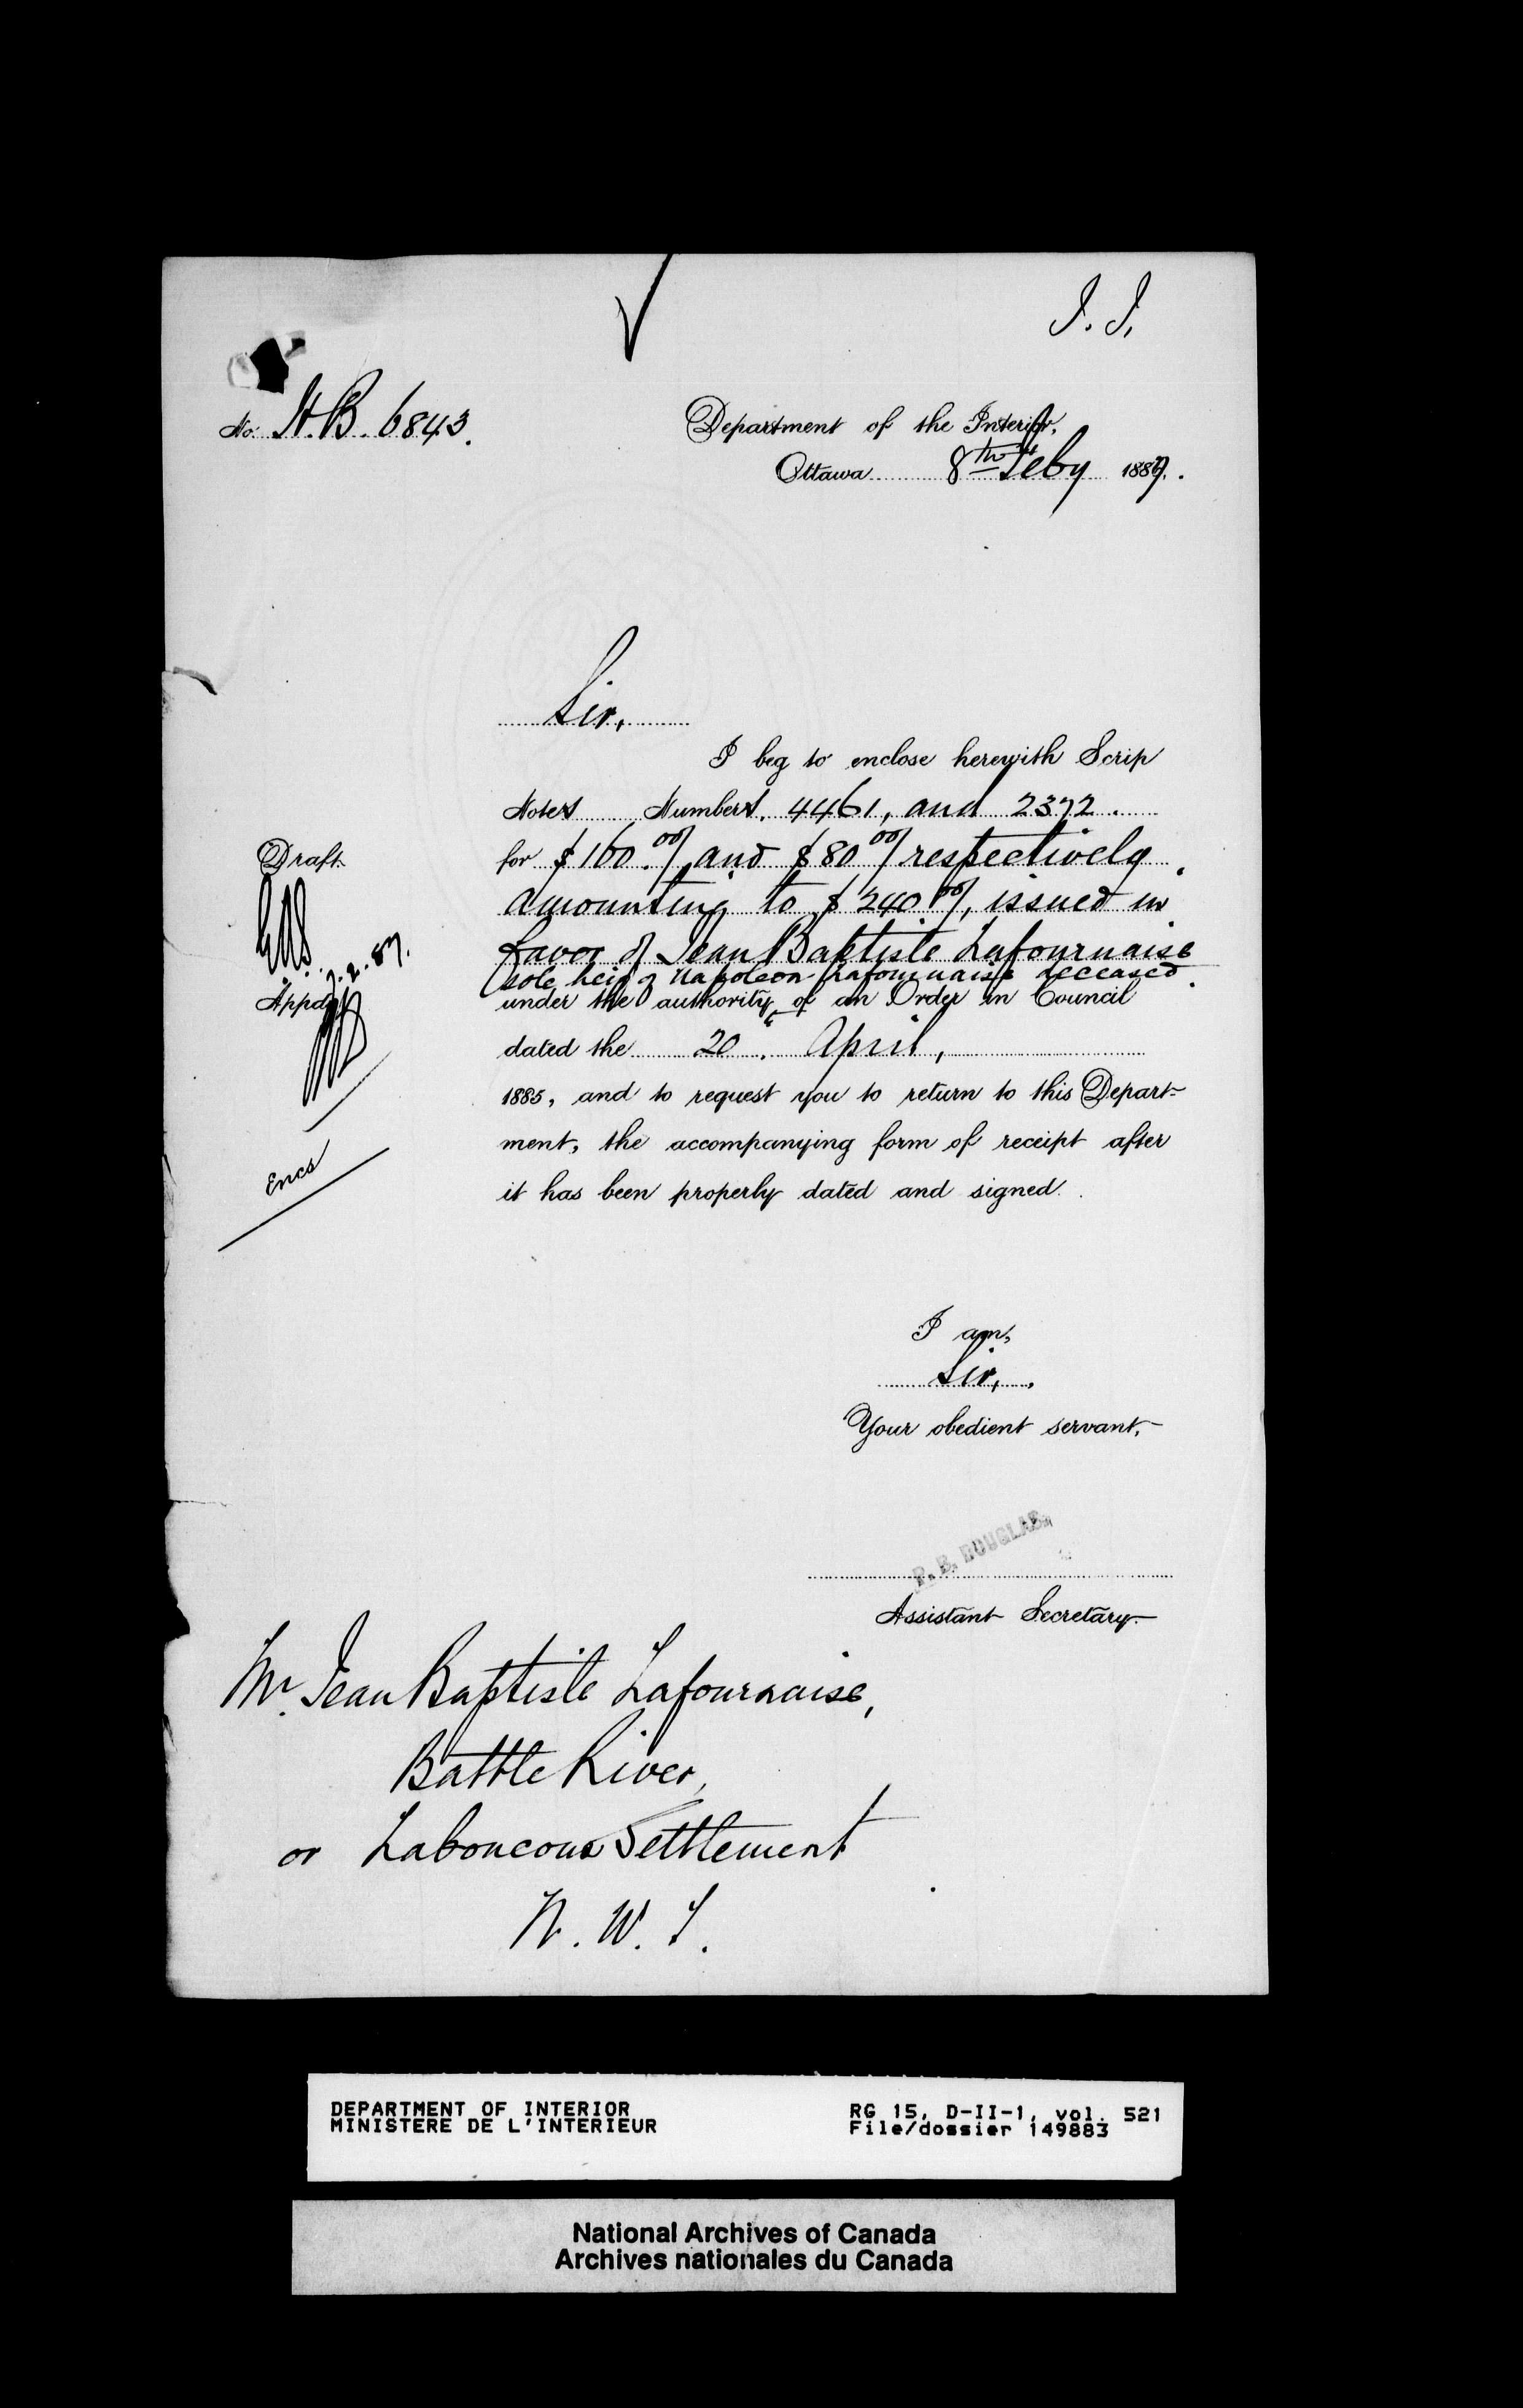 J. J.
No. H.B. 6843.
Department of the Interior,
Ottawa 8th Feby 1887.
Sir,
I beg to enclose herewith Scrip
Notes Numbers. 4461, and 2372.
for $160.00/ and $80.00/ respectively
amounting to $240.00/, issued in
favor of Jean Baptiste Lafournaise
(sole heir of Napoleon Lafournaise deceased
under the authority of an Order in Council
dated the 20". April,
1885, and to request you to return to this Depart-
ment, the accompanying form of receipt after
it has been properly dated and signed.
Draft
7.2.87.
Appd
Encs
I am,
Sir,
Your obedient servant,
P. B. DOUGLAS,
Assistant Secretary.
Mr. Jean Baptiste Lafournaise,
Battle River,
or Laboucour Settlement
N. W. T.
DEPARTMENT OF INTERIOR
MINISTERE DE L'INTERIEUR
RG 15, D-II-1, vol. 521
File/dossier 149883
National Archives of Canada
Archives nationales du Canada